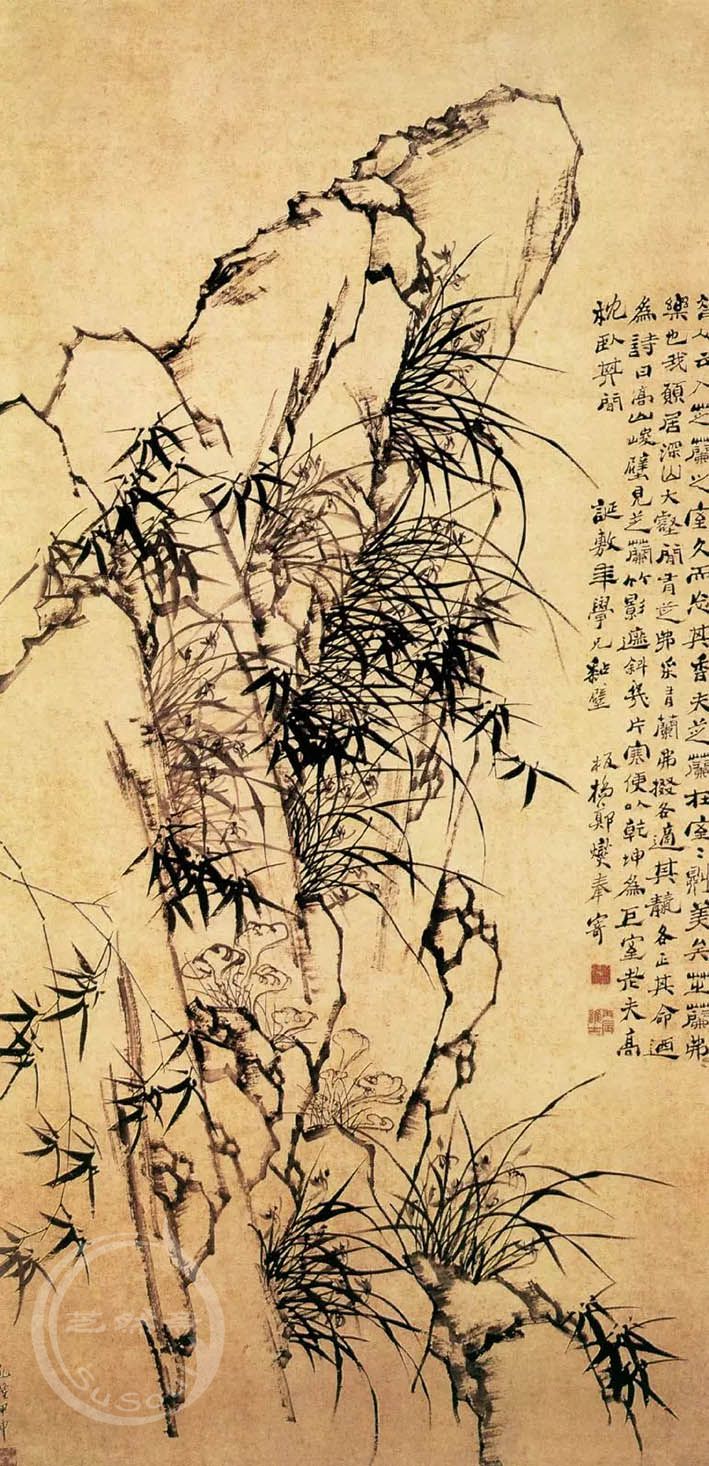 昔人云入芝蘭之室久而忘其香夫芝蘭在室室則美矣芝蘭弗
樂也我願居深山大壑間有芝弗采有蘭弗掇各適其龯各正其命迺
為詩曰高山峻壁見芝蘭竹影遮斜幾片寒便以乾坤為巨室老夫高
枕臥其間
誕敷年學兄黏壁
板橋鄭燮奉寄
乾隆甲申
SUSONG